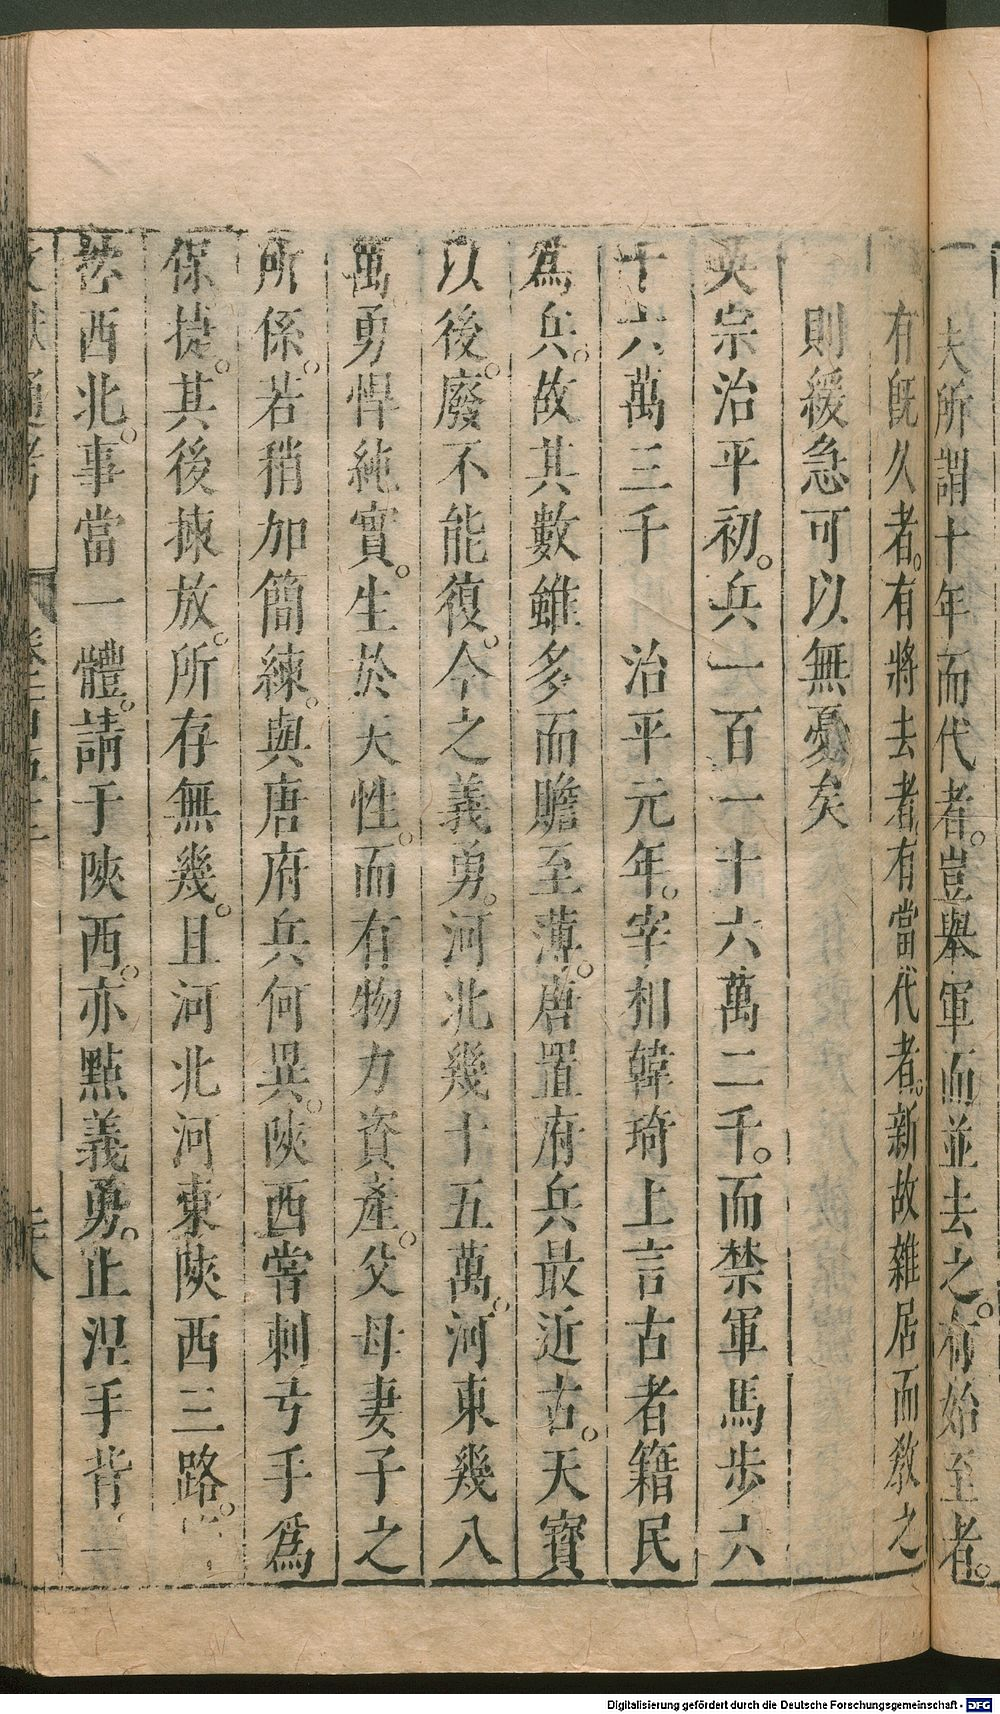 夫所謂十年而代者豈舉軍而並去之有始至者
有既久者有將去者有當代者新故雜居而教之
則緩急可以無憂矣
英宗治平初兵一百一十六萬二千而禁軍馬步六
十六萬三千 治平元年宰相韓琦上言古者籍民
為兵故其數雖多而贍至薄唐置府兵最近古天寶
以後廢不能復今之義勇河北幾十五萬河東幾八
萬勇悍純實生於天性而有物力資產父母妻子之
所係若稍加簡練與唐府兵何異陜西嘗刺弓手為
保捷其後揀放所存無幾且河北河東陜西三路
西北事當一體請于陜西亦點義勇止涅手背
文獻通考
Digitalisierung gefördert durch die Deutsche Forschungsgemeinschaft - DFG